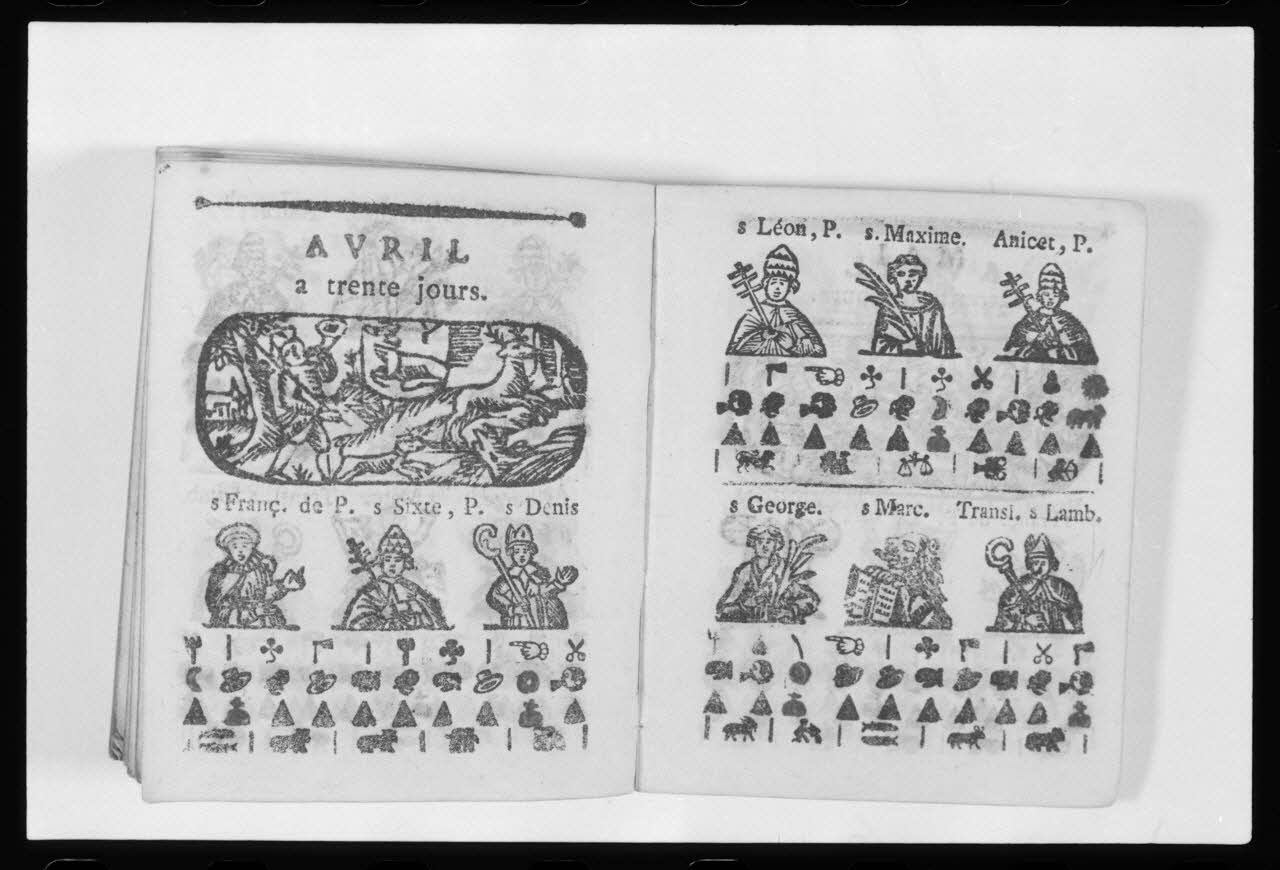 AVRIL
a trente jours.
s Franç. de P. s Sixte, P. s Denis
s Léon, P. s. Maxime. Anicet, P.
s George. s Marc. Transl. s Lamb.